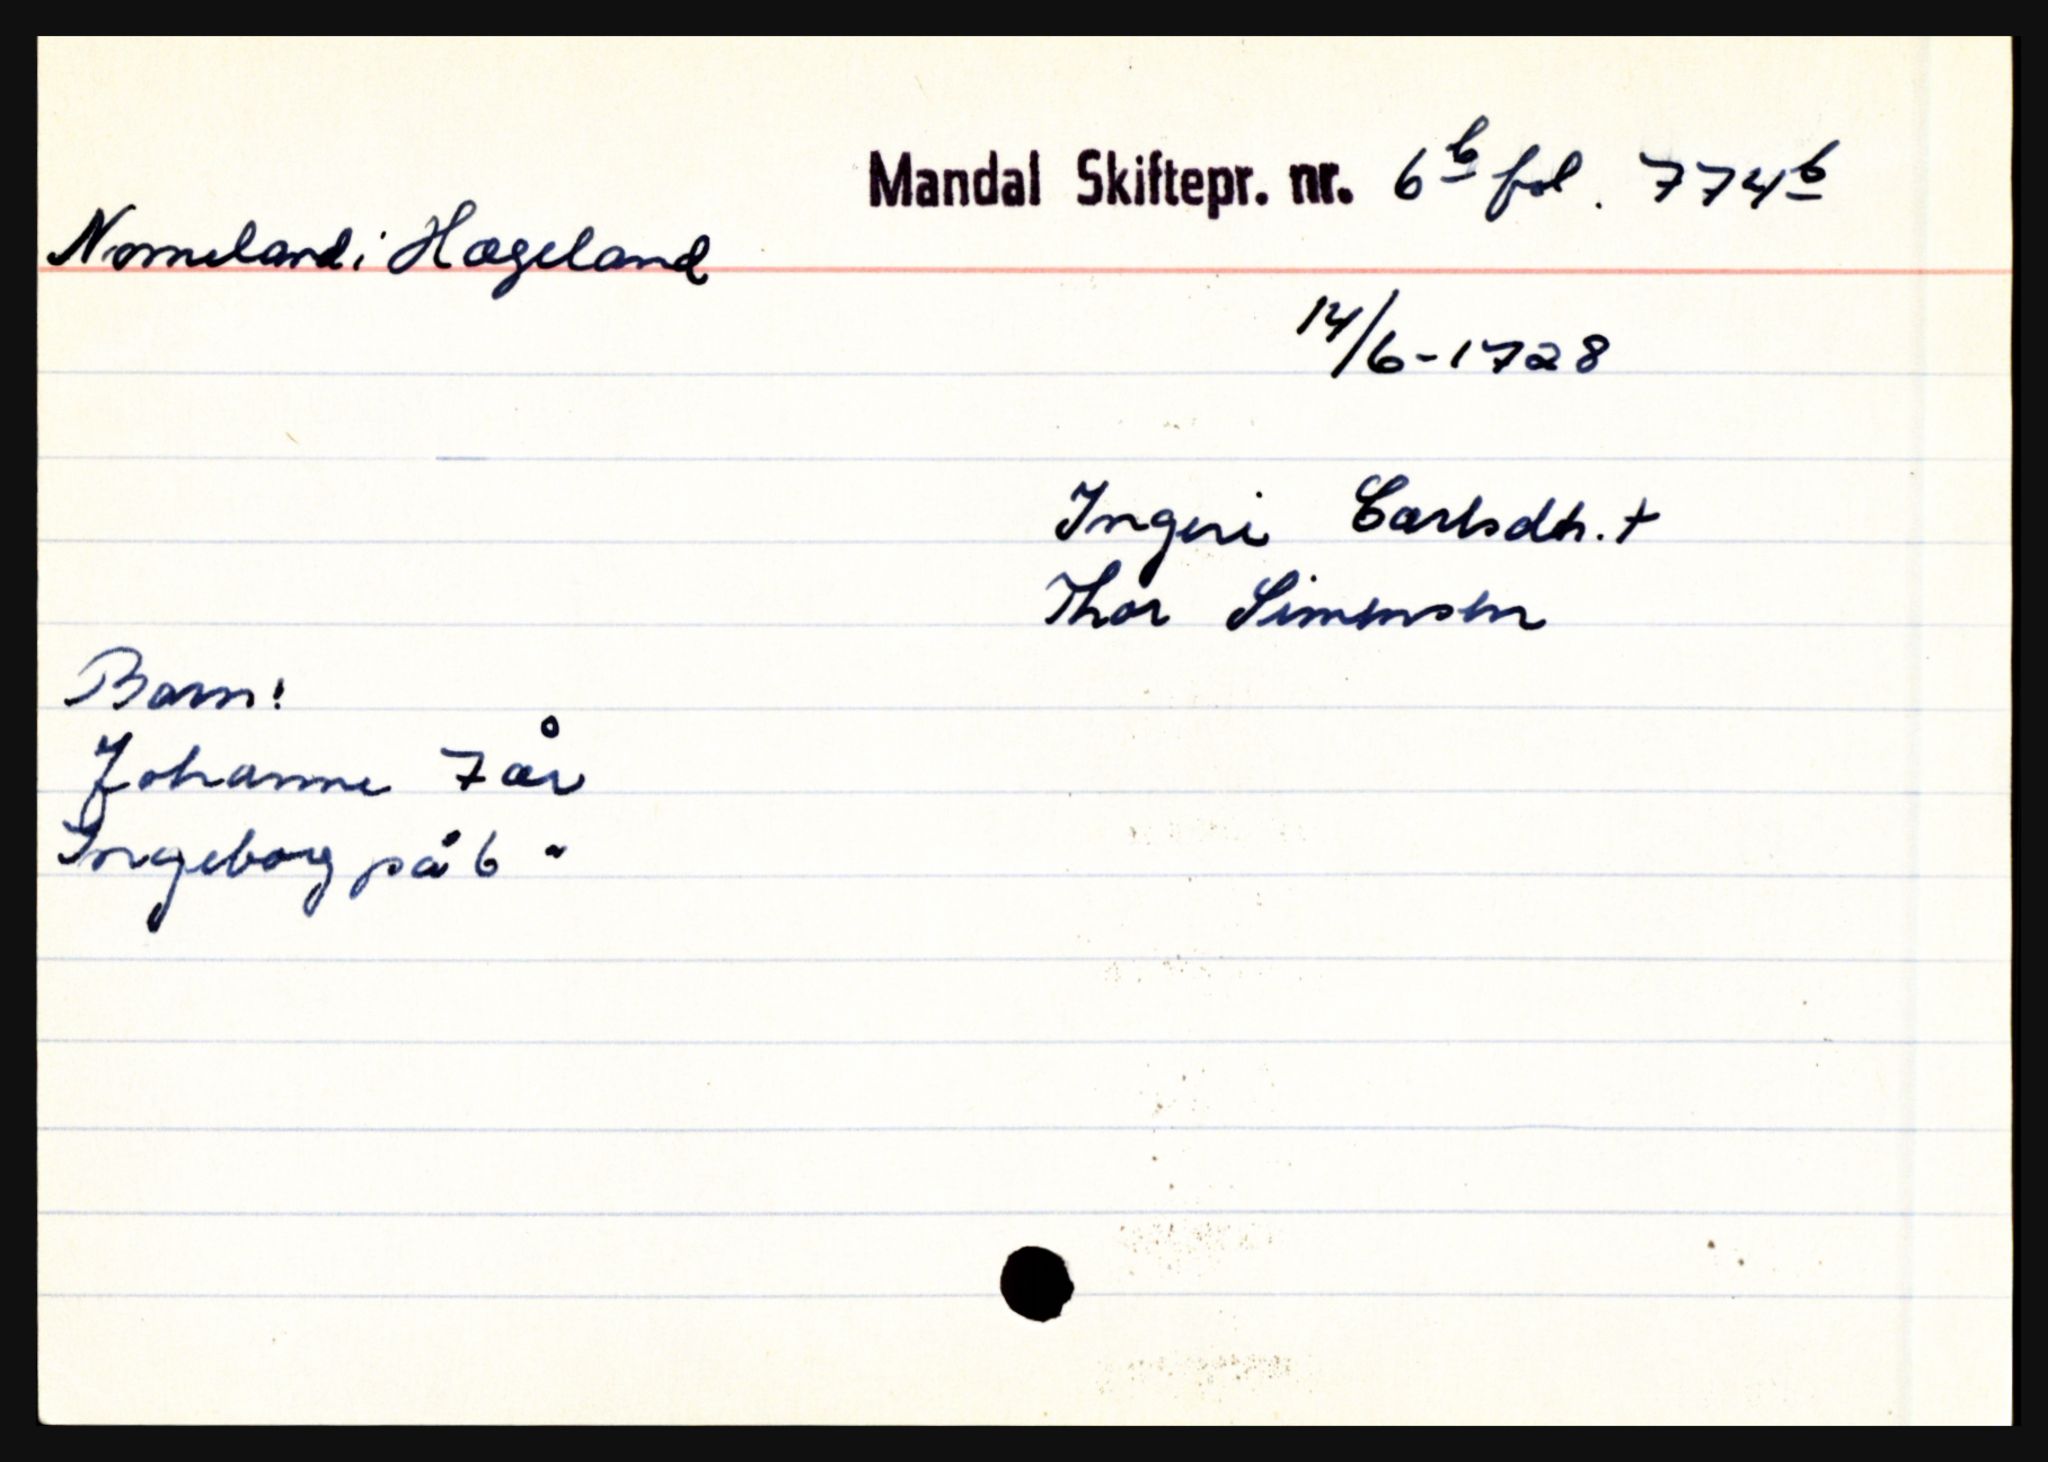 Mandal Skiftepr. nr. 6b fol. 774b
Nomeland i Hægeland
14/6-1728
Ingeri Carlsdtr. +
Thor Simensen
Barn:
Johanne 7 år
Ingeborg på 6 "